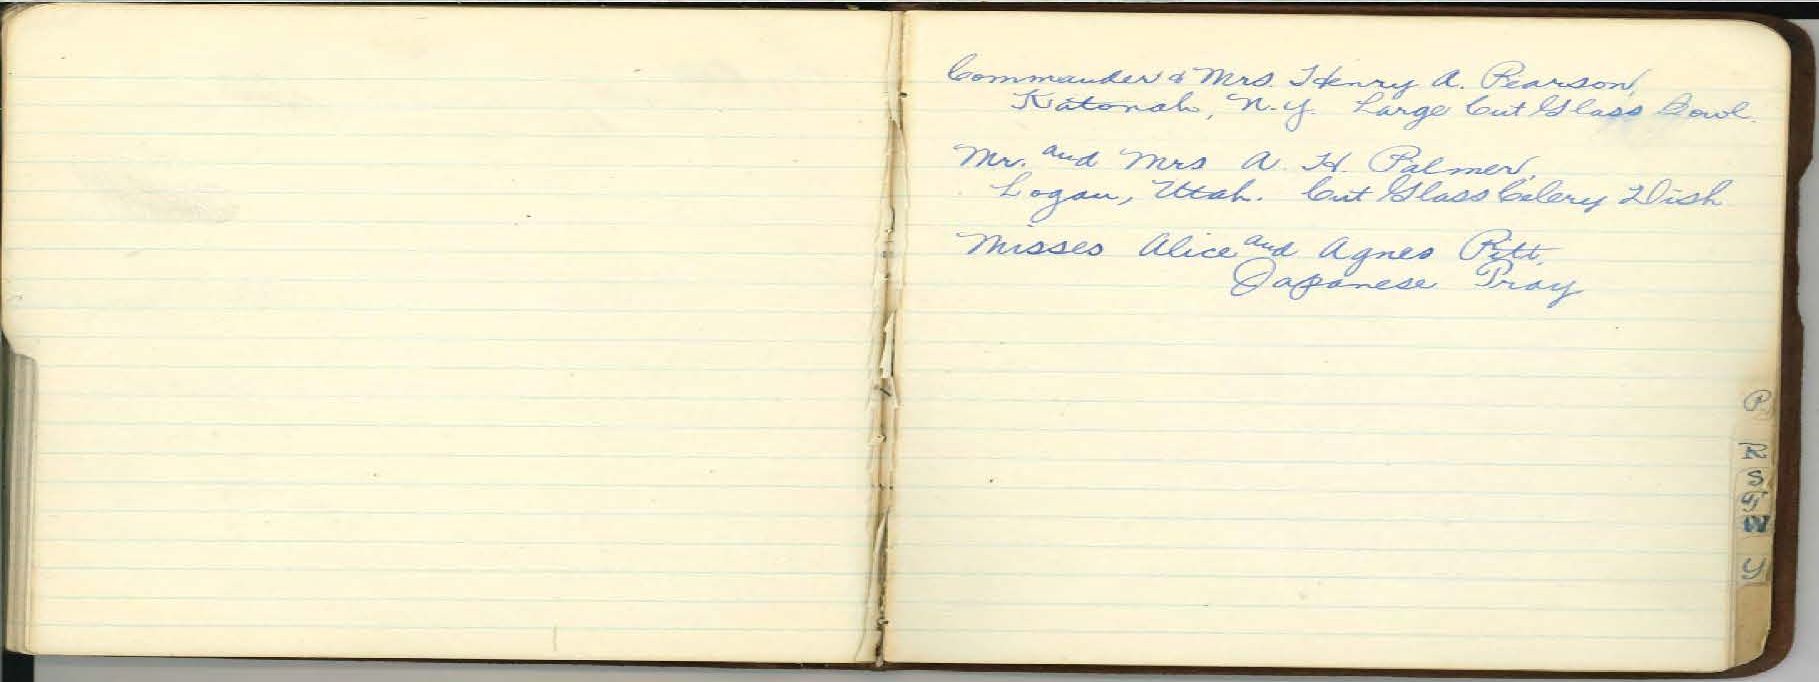 Commander & Mrs. Henry A. Pearson,
Katonah, N.Y. Large Cut Glass Bowl.
Mr. and Mrs A. H. Palmer,
Logan, Utah. Cut Glass Celery Dish
Misses Alice and Agnes Pitt.
Japanese Tray
P
R
S
T
W
Y